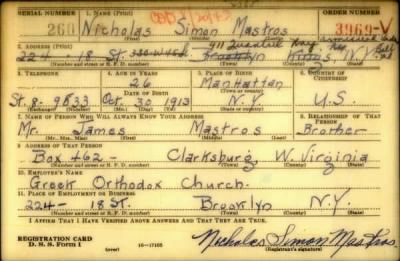 SERIAL NUMBER 1. NAME (Print) ORDER NUMBER
260 Nicholas Simon Mastros 3969-V
(First) (Middle) (Last)
2. ADDRESS (Print)
224 - 18 St. Brooklyn N.Y.
(Number and street or R. F. D. number) (Town) (County) (State)
3. TELEPHONE 4. AGE IN YEARS 5. PLACE OF BIRTH 6. COUNTRY OF CITIZENSHIP
26 Manhattan
DATE OF BIRTH (Town or county)
St. 8-9833 Oct. 30 1913 N.Y. U.S.
(Exchange) (Number) (Mo.) (Day) (Yr.) (State or country)
7. NAME OF PERSON WHO WILL ALWAYS KNOW YOUR ADDRESS 8. RELATIONSHIP OF THAT PERSON
Mr. James Mastros Brother
(Mr., Mrs., Miss) (First) (Middle) (Last)
9. ADDRESS OF THAT PERSON
Box 462 - Clarksburg, W. Virginia
(Number and street or R. F. D. number) (Town) (County) (State)
10. EMPLOYER'S NAME
Greek Orthodox Church.
11. PLACE OF EMPLOYMENT OR BUSINESS
224 - 18 St. Brooklyn N.Y.
(Number and street or R. F. D. number) (Town) (County) (State)
I AFFIRM THAT I HAVE VERIFIED ABOVE ANSWERS AND THAT THEY ARE TRUE.
REGISTRATION CARD
D. S. S. Form 1 16-17105 Nicholas Simon Mastros.
(Registrant's signature)